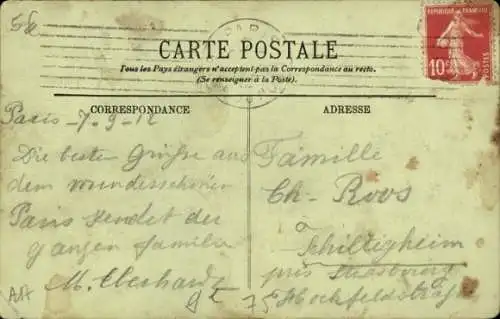 58
PARIS
RÉPUBLIQUE FRANÇAISE
10c
POSTES
CARTE POSTALE
Tous les Pays étrangers n'acceptent pas la Correspondance au recto.
(Se renseigner à la Poste.)
CORRESPONDANCE
ADRESSE
Paris 7-9-12
Die besten Grüsse aus
dem wunderschönen
Paris sendet der
ganzen Familie
M. Eberhardt
Famille
Ch. Roos
Schiltigheim
près Strasbourg
75 Hochfeldstraße